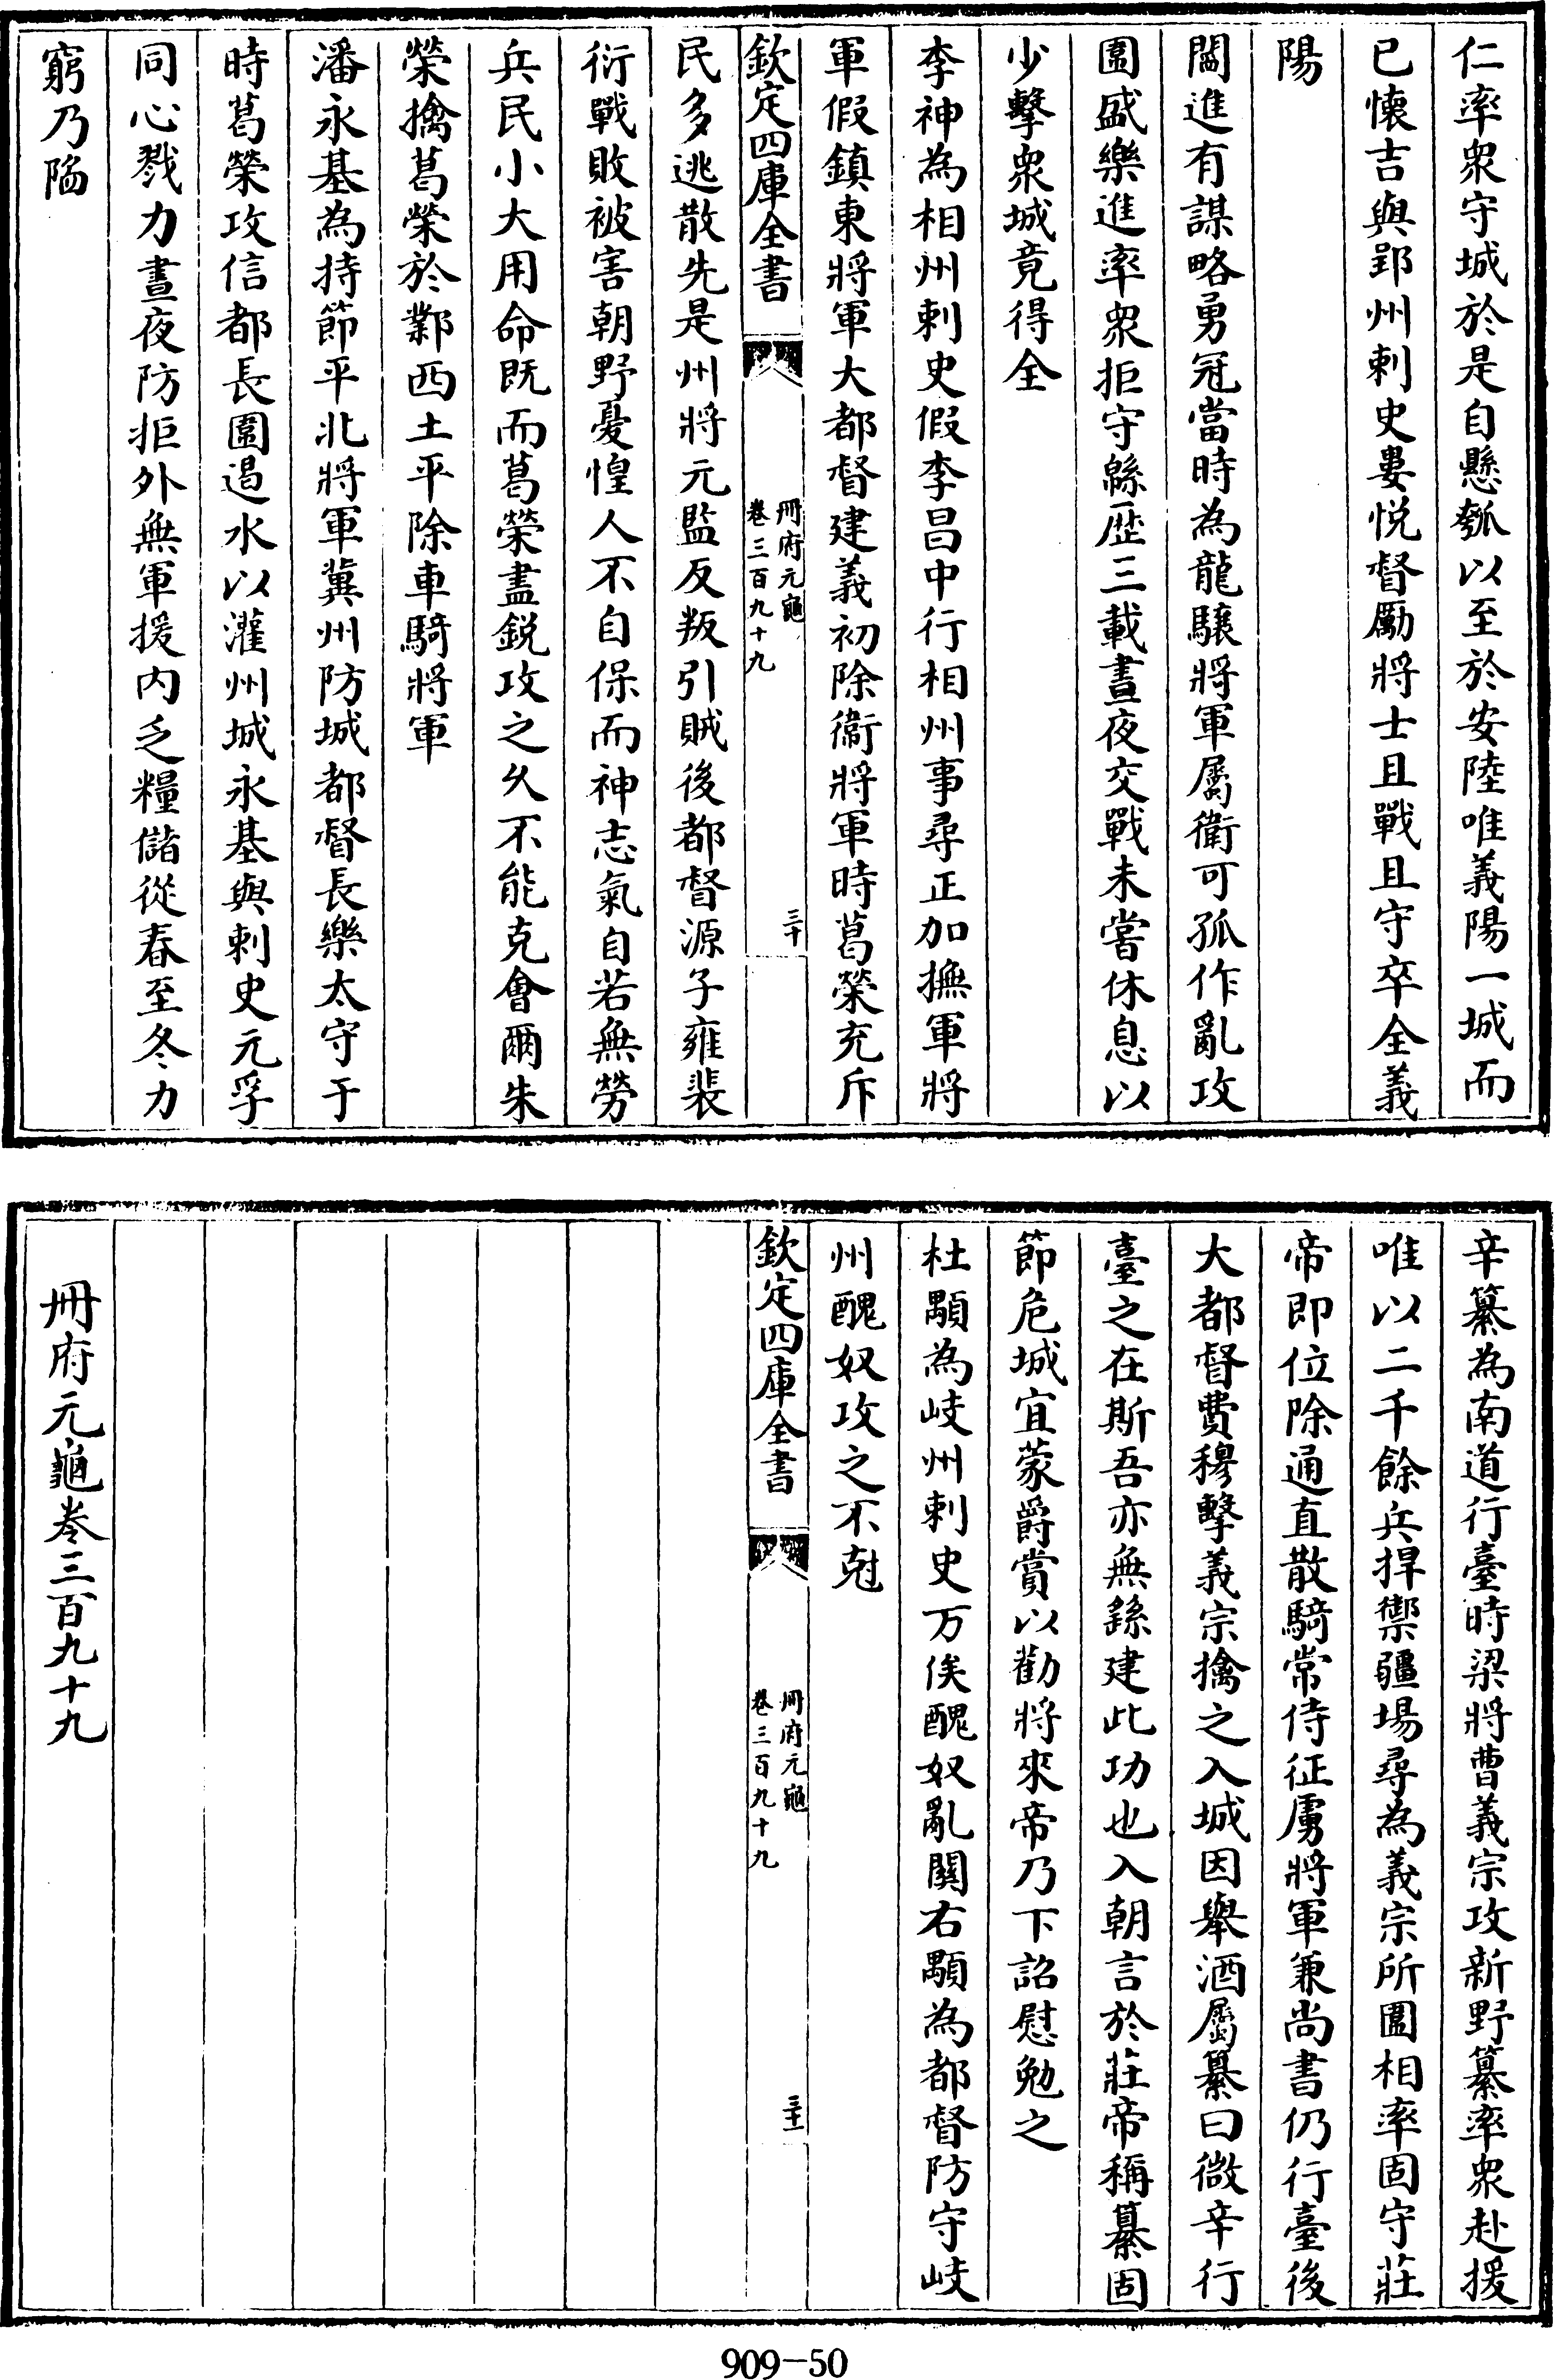 仁率衆守城於是自懸瓠以至於安陸唯義陽一城而
已懷吉與郢州刺史婁悅督厲將士且戰且守卒全義
陽
閻進有謀略勇冠當時為龍驤將軍屬衛可孤作亂攻
圍盛樂進率衆拒守緜歴三載晝夜交戰未嘗休息以
少擊衆城竟得全
李神為相州刺史假李昌中行相州事尋正加撫軍將
軍假鎮東將軍大都督建義初除衞將軍時葛榮充斥
欽定四庫全書
冊府元龜
卷三百九十九
三十
民多逃散先是州將元監反叛引賊後都督源子雍裴
衍戰敗被害朝野憂惶人不自保而神志氣自若無勞
兵民小大用命既而葛榮盡銳攻之久不能克會爾朱
榮擒葛榮於鄴西土平除車騎將軍
潘永基為持節平北將軍冀州防城都督長樂太守于
時葛榮攻信都長圍遏水以灌州城永基與刺史元孚
同心戮力晝夜防拒外無軍援内乏糧儲從春至冬力
窮乃陥
辛纂為南道行臺時梁將曹義宗攻新野纂率衆赴援
唯以二千餘兵捍禦疆場尋為義宗所圍相率固守莊
帝即位除通直散騎常侍征虜將軍兼尚書仍行臺後
大都督費穆擊義宗擒之入城因舉酒屬纂曰微辛行
臺之在斯吾亦無繇建此功也入朝言於莊帝稱纂固
節危城宜蒙爵賞以勸將來帝乃下詔慰勉之
杜顒為岐州刺史万俟醜奴亂關右顒為都督防守岐
州醜奴攻之不尅
欽定四庫全書
冊府元龜
卷三百九十九
三十一
冊府元龜卷三百九十九
909-50